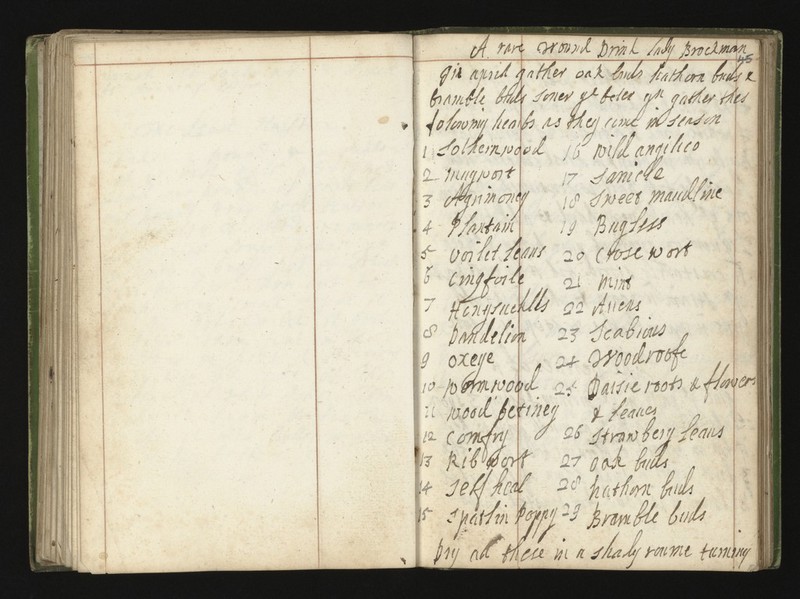 A rare Wound Drink Lady Brockman
45
Gin april gather oak buds hathorn buds &
bramble buds soner yn gather thes
folowing hearbs as they come in season
1 Sothernwood 16 wild angilico
2 mugwort 17 Sanicle
3 Agrimoney 18 Sweet maudline
4 Plantain 19 Bugless
5 voilet leaus 20 Close wort
6 Cingfoile 21 mint
7 Honysucklls 22 Auens
8 Dandelion 23 Scabious
9 oxeye 24 Woodroofe
10 wormwood 25 Daisie roots & flowers
11 wood betiney & leaues
12 Comfry 26 Strawbery leaus
13 Ribwort 27 oak buds
14 Self heal 28 hathorn buds
15 Spatlin Poppy 29 Bramble buds
Dry all these in a shaly roume turning